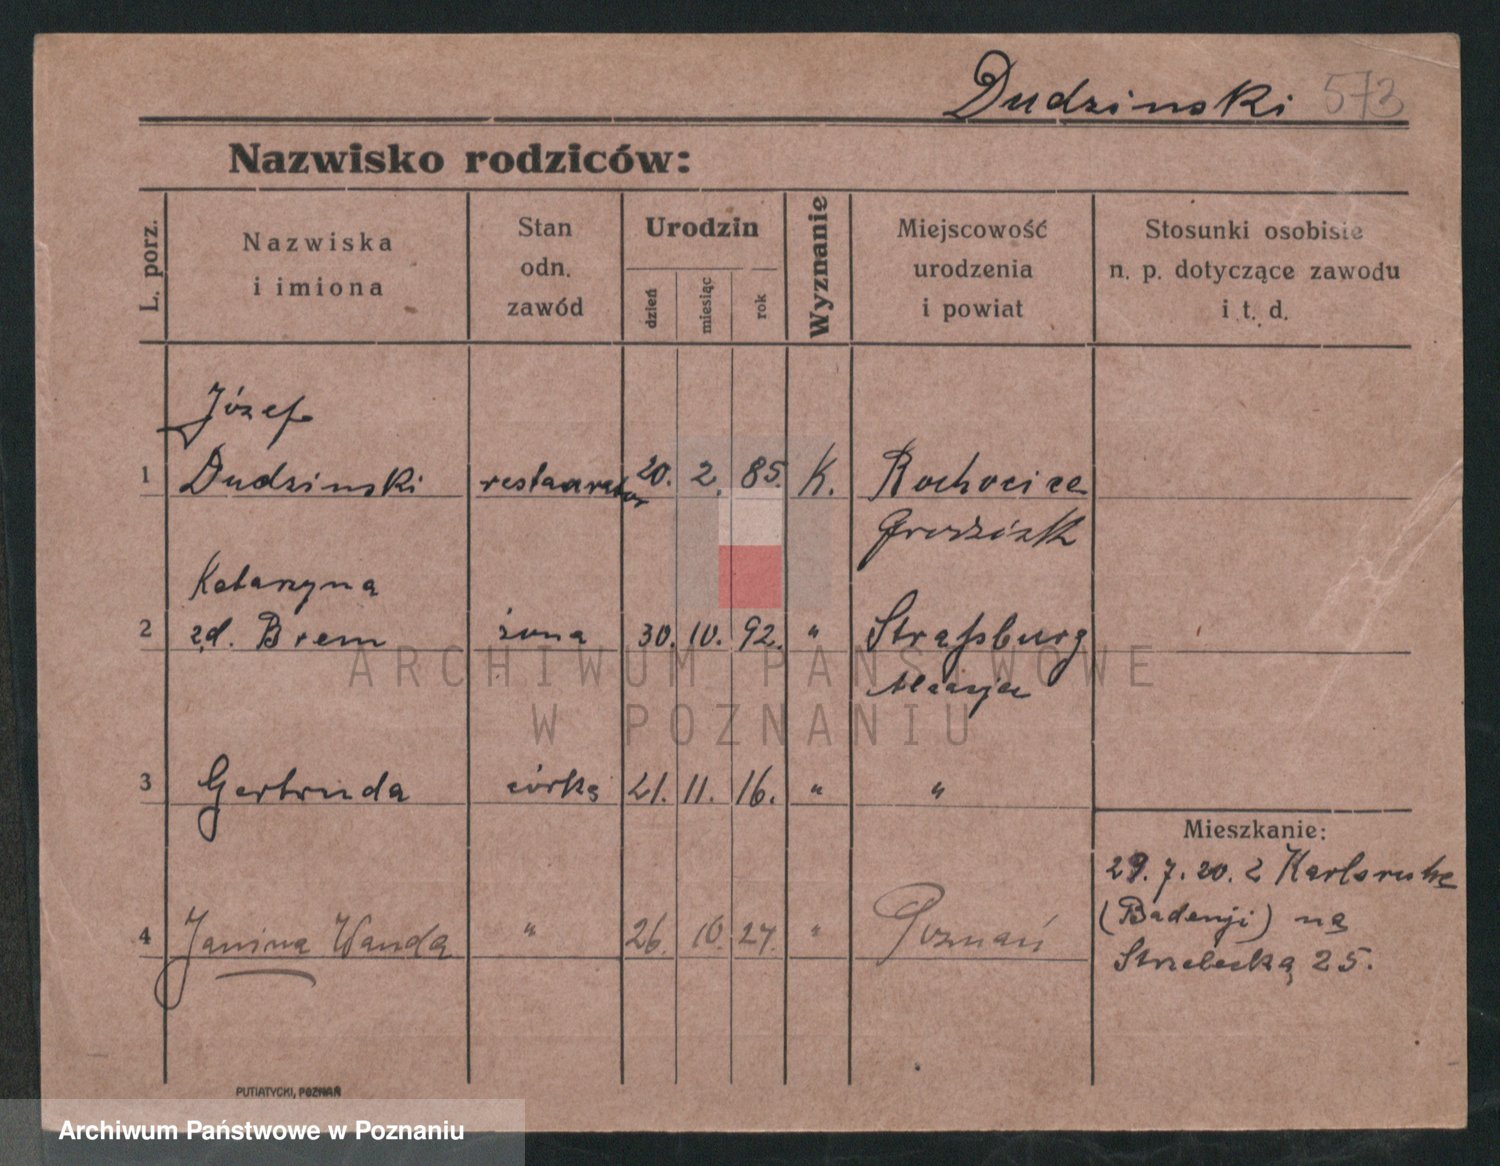 Dudzinski 573
Nazwisko rodziców:
L. porz.
Nazwiska
i imiona
Stan
odn.
zawód
Urodzin
dzień
miesiąc
rok
Wyznanie
Miejscowość
urodzenia
i powiat
Stosunki osobiste
n. p. dotyczące zawodu
i t. d.
Józef
1 Dudzinski restaurator 20. 2. 85. K.
Grodzisk
Katarzyna
2 zd. Brem żona 30. 10. 92. " Straßburg
Alzacja
3 Gertruda córka 21. 11. 16. " "
Mieszkanie:
29. 7. 20. z Karlsruhe
(Badenji) na
Strzelecką 25.
4 Janina Wanda " 26. 10. 27. " Poznań
PUTIATYCKI, POZNAŃ
ARCHIWUM PAŃSTWOWE
W POZNANIU
Archiwum Państwowe w Poznaniu